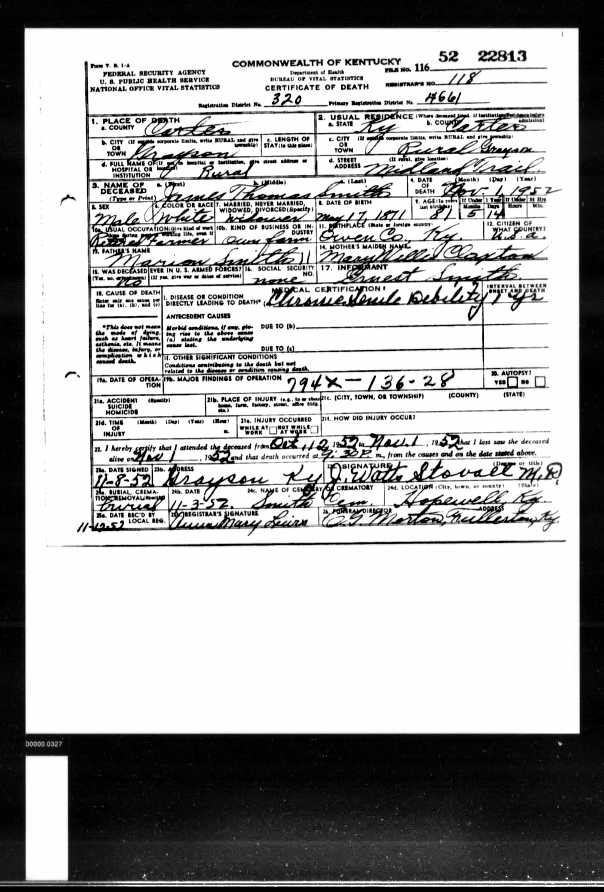 Form V. S. 1-A
FEDERAL SECURITY AGENCY
U. S. PUBLIC HEALTH SERVICE
NATIONAL OFFICE VITAL STATISTICS
COMMONWEALTH OF KENTUCKY
Department of Health
BUREAU OF VITAL STATISTICS
CERTIFICATE OF DEATH
52 22813
FILE NO. 116
REGISTRAR'S NO. 118
Registration District No. 320 Primary Registration District No. 4661
1. PLACE OF DEATH
a. COUNTY Carter
2. USUAL RESIDENCE (Where deceased lived. If institution: Residence before admission)
a. STATE Ky b. COUNTY Carter
b. CITY (If outside corporate limits, write RURAL and give township)
OR TOWN Grayson
c. LENGTH OF STAY (in this place)
c. CITY (If outside corporate limits, write RURAL and give township)
OR TOWN Rural Grayson
d. FULL NAME OF (If not in hospital or institution, give street address or location)
HOSPITAL OR INSTITUTION Rural
d. STREET ADDRESS (If rural, give location) Midland Trail
3. NAME OF DECEASED (Type or Print)
a. (First) b. (Middle) c. (Last)
James Thomas Smith
4. DATE OF DEATH (Month) (Day) (Year)
Nov. 1, 1952
5. SEX Male
6. COLOR OR RACE White
7. MARRIED, NEVER MARRIED, WIDOWED, DIVORCED (Specify) Widower
8. DATE OF BIRTH May 17, 1871
9. AGE (In years last birthday) 81 If Under 1 Year Months 5 Days 14 If Under 24 Hrs Hours Min.
10a. USUAL OCCUPATION (Give kind of work done during most of working life, even if retired) Retired Farmer
10b. KIND OF BUSINESS OR INDUSTRY Own farm
11. BIRTHPLACE (State or foreign country) Owen Co. Ky
12. CITIZEN OF WHAT COUNTRY? U.S.A
13. FATHER'S NAME Marion Smith
14. MOTHER'S MAIDEN NAME Mary Claxton
15. WAS DECEASED EVER IN U. S. ARMED FORCES? (Yes, no, or unknown) (If yes, give war or dates of service) no
16. SOCIAL SECURITY NO. none
17. INFORMANT Smith
18. CAUSE OF DEATH
Enter only one cause per line for (a), (b), and (c)
MEDICAL CERTIFICATION
INTERVAL BETWEEN ONSET AND DEATH
I. DISEASE OR CONDITION DIRECTLY LEADING TO DEATH* Chronic Senile Debility 1 yr
ANTECEDENT CAUSES
*This does not mean the mode of dying, such as heart failure, asthenia, etc. It means the disease, injury, or complication which caused death.
Morbid conditions, if any, giving rise to the above cause (a) stating the underlying cause last.
DUE TO (b)
DUE TO (c)
II. OTHER SIGNIFICANT CONDITIONS
Conditions contributing to the death but not related to the disease or condition causing death.
19a. DATE OF OPERATION
19b. MAJOR FINDINGS OF OPERATION
794X-136-28
20. AUTOPSY?
YES NO
21a. ACCIDENT (Specify) SUICIDE HOMICIDE
21b. PLACE OF INJURY (e.g., in or about home, farm, factory, street, office bldg., etc.)
21c. (CITY, TOWN, OR TOWNSHIP) (COUNTY) (STATE)
21d. TIME OF INJURY (Month) (Day) (Year) (Hour) m.
21e. INJURY OCCURRED WHILE AT WORK NOT WHILE AT WORK
21f. HOW DID INJURY OCCUR?
22. I hereby certify that I attended the deceased from Oct, 1952 to Nov. 1, 1952 that I last saw the deceased
alive on Nov 1, 1952 and that death occurred at 9:30 P. m., from the causes and on the date stated above.
23a. DATE SIGNED 11-8-52
23b. ADDRESS Grayson Ky
SIGNATURE (Degree or title) J. Watts Stovall M.D.
24a. BURIAL, CREMATION, REMOVAL burial
24b. DATE 11-3-52
24c. NAME OF CEMETERY OR CREMATORY Smith Cem.
24d. LOCATION (City, town, or county) (State) Hopewell Ky
25a. DATE REC'D BY LOCAL REG. 11-12-52
REGISTRAR'S SIGNATURE Mary
26. FUNERAL DIRECTOR ADDRESS
Morton, Fullerton, Ky.
00000.0327